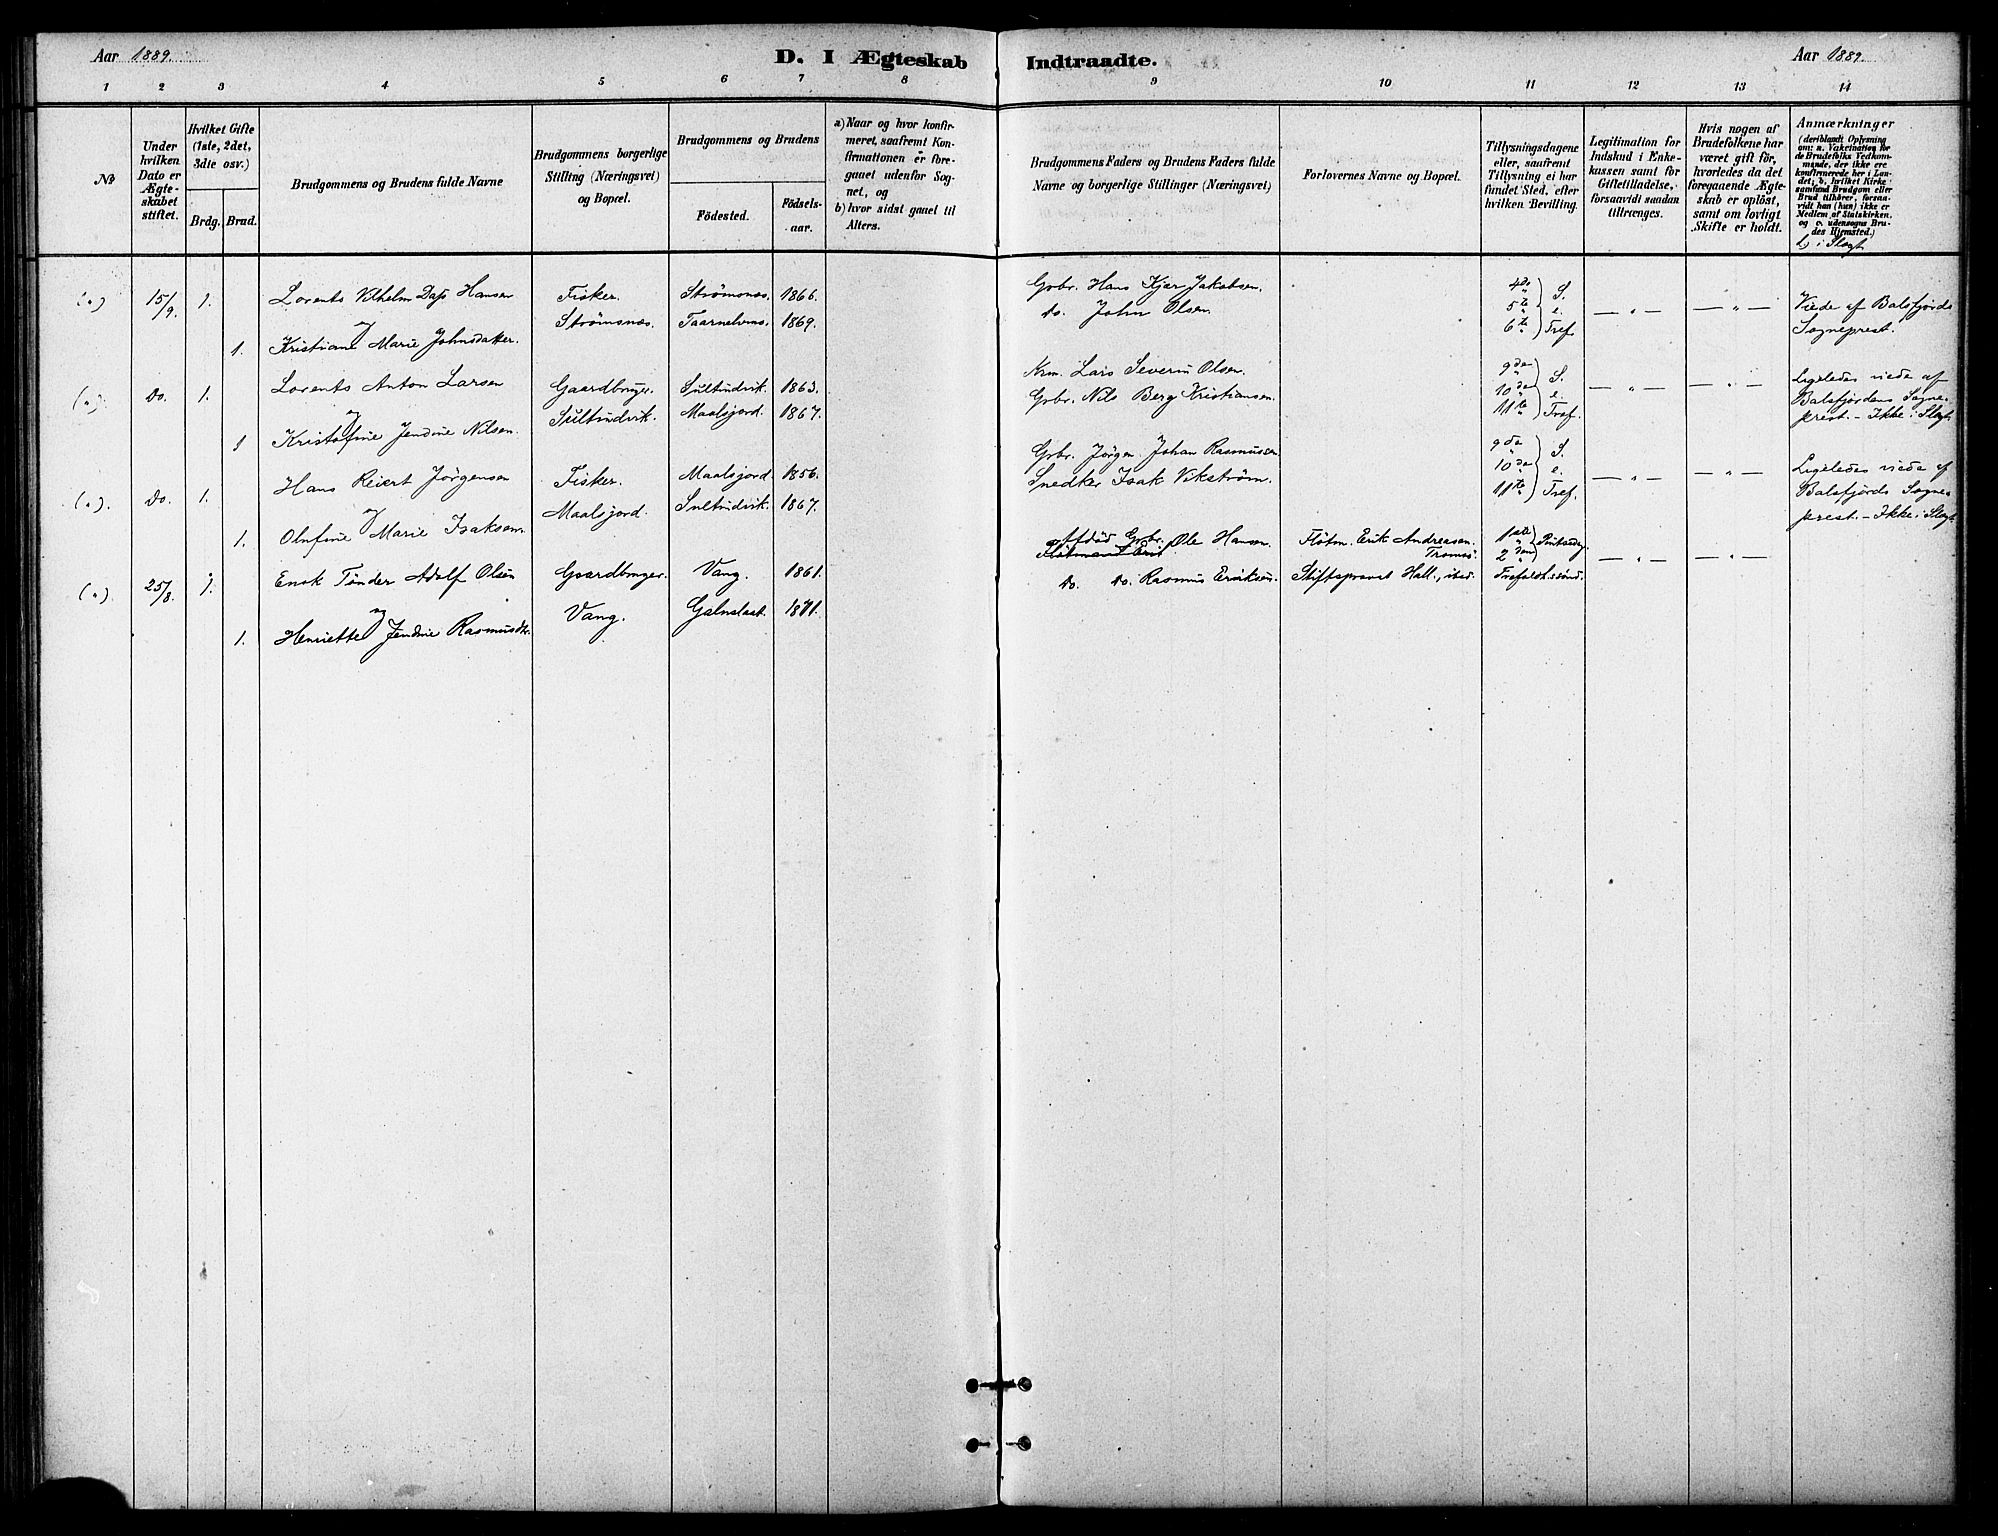 Aar 1889.
D. I Ægteskab Indtraadte.
Aar 1889.
1 2 3 4 5 6 7 8 9 10 11 12 13 14
№
Under hvilken Dato er Ægteskabet stiftet.
Hvilket Gifte (1ste, 2det, 3die osv.)
Brdg. Brud.
Brudgommens og Brudens fulde Navne
Brudgommens borgerlige Stilling (Næringsvei) og Bopæl.
Brudgommens og Brudens
Födested.
Födselsaar.
a) Naar og hvor konfirmeret, saafremt Konfirmationen er foregaaet udenfor Sognet, og
b) hvor sidst gaaet til Alters.
Brudgommens Faders og Brudens Faders fulde Navne og borgerlige Stillinger (Næringsvei)
Forlovernes Navne og Bopæl.
Tillysningsdagene eller, saafremt Tillysning ei har fundet Sted, efter hvilken Bevilling.
Legitimation for Indskud i Enkekassen samt for Giftetilladelse, forsaavidt saadan tiltrænges.
Hvis nogen af Brudefolkene har været gift för, hvorledes da det foregaaende Ægteskab er oplöst, samt om lovligt Skifte er holdt.
Anmærkninger
(deriblandt Oplysning om: a. Vakcination for de Brudefolks Vedkommende, der ikke ere konfirmerede her i Landet; b. hvilket Kirkesamfund Brudgom eller Brud tilhörer, forsaavidt han (hun) ikke er Medlem af Statskirken, og c. udensogns Brudes Hjemsted.)
i Slægt
(") 15/9. 1. Lorents Vilhelm Dass Hansen Fisker. Strömsnæs. 1866. Gbr. Hans Kjær Jakobsen. 4de 5te 6te S. e. Tref. — " — — " — Viede af Balsfjords Sogneprest.
og
1. Kristiane Marie Johnsdatter. Strömsnæs. Taarnelvens. 1869. Do. John Olsen.
("). Do. 1. Lorents Anton Larsen Gaardbruger. Sultindvik. 1863. Krm. Lars Severin Olsen. 9de 10de 11te S. e. Tref. — " — — " — Ligeledes viede af Balsfjordens Sogneprest. – Ikke i Slægt
og
1 Kristofine Jendine Nilsen. Sultindvik. Maalsjord. 1867. Gbr. Nils Berg Kristiansen.
("). Do. 1. Hans Reiert Jörgensen Fisker. Maalsjord 1856. Gbr. Jörgen Johan Rasmussen 9de 10de 11te S. e. Tref. — " — — " — Ligeledes viede af Balsfjords Sogneprest. – Ikke i Slægt
og
1. Olufine Marie Isaksen. Maalsjord. Sultindvik. 1867. Snedker Isak Vikström.
("). 25/8. 1. Enok Tönder Adolf Olsen Gaardbruger. Vang. 1861. Afdöd Gbr. Ole Hansen. Flötm. Erik Andreasen. Tromsö. 1ste 2den Pintsedag — " — — " —
og
1. Henriette Jendine Rasmusdtr. Vang. Galnslaat. 1871. Do. Do. Rasmus Eriksen. Stiftsprovst Hall., ibid. Trefoldh.sönd.